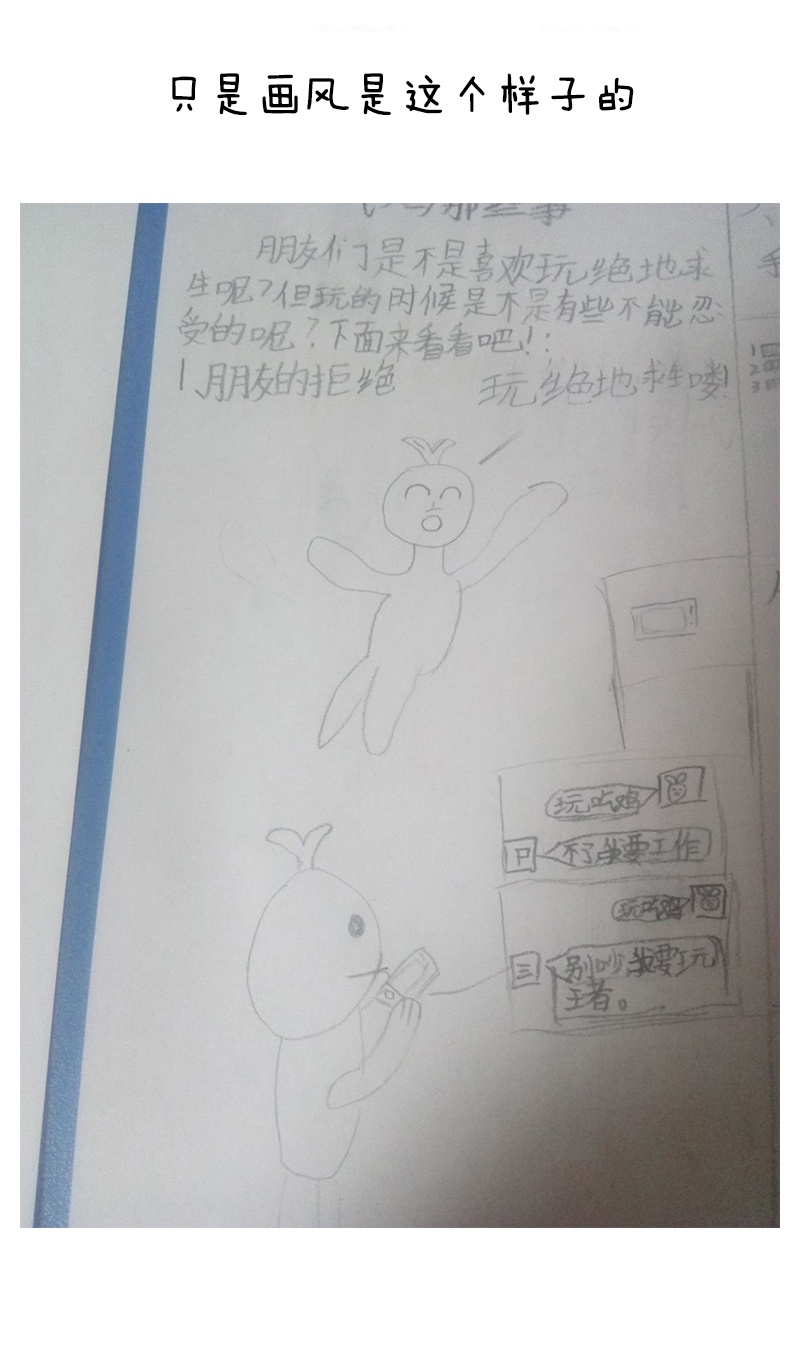 只是画风是这个样子的
那些事
朋友们是不是喜欢玩绝地求
生呢?但玩的时候是不是有些不能忍
受的呢?下面来看看吧!:
1、朋友的拒绝
玩绝地求生喽!
手
1
2
3
玩吃鸡
不了我要工作
玩吃鸡
三
别吵我要玩
王者。